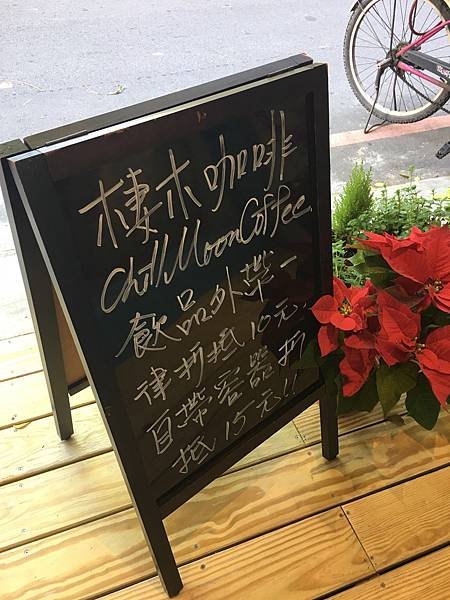 棲木咖啡
Chill Moon Coffee
飲品外帶一
律折抵10元.
自帶容器折
抵15元!!